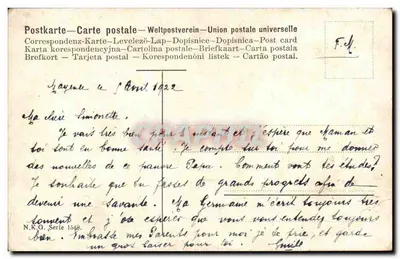 Postkarte — Carte postale — Weltpostverein — Union postale universelle
Correspondenz-Karte — Levelező-Lap — Dopisnice — Dopisnica — Post card
Karta korespondencyjna — Cartolina postale — Briefkaart — Carta postala
Brefkort — Tarjeta postal — Korespondenční listek — Cartão postal.
F. M.
Mayence le 5 Avril 1922
Ma chère Simonette.
Je vais très bien pour l'instant et j'espère que Maman et
toi sont en bonne santé. Je compte sur toi pour me donner
des nouvelles de ce pauvre Papa. Comment vont tes études?
Je souhaite que tu fasses de grands progrès afin de
devenir une savante. Ma Germaine m'écrit toujours très
souvent et j'ose espérer que vous vous entendez toujours
bien. Embrasse mes Parents pour moi je te prie, et garde
un gros baiser pour toi. Emile
N.K.G. Serie 1548.